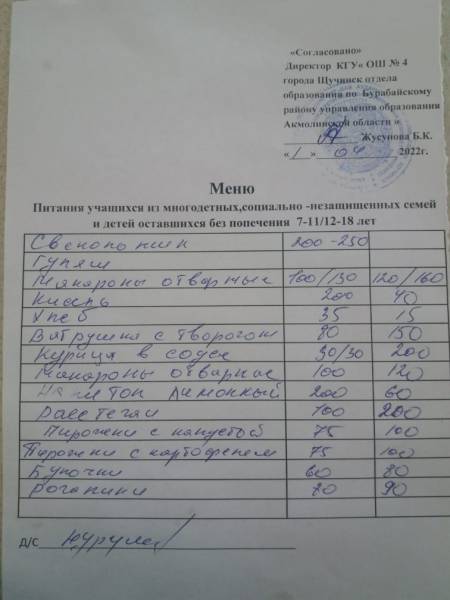 «Согласовано»
Директор КГУ« ОШ № 4
города Щучинск отдела
образования по Бурабайскому
району управления образования
Акмолинской области »
Жусупова Б.К.
« 1 » 04 2022г.
Меню
Питания учащихся из многодетных,социально -незащищенных семей
и детей оставшихся без попечения 7-11/12-18 лет
200-250
Гуляш
Макароны отварные 100/130 120/160
Кисель 200 40
Хлеб 35 15
Ватрушка с творогом 80 150
Курица в соусе 30/30 200
Макароны отварные 100 120
лимонный 200 60
100 200
Пирожки с капустой 75 100
Пирожки с картофелем 75 100
Булочки 60 80
Рогалики 80 90
Д/С